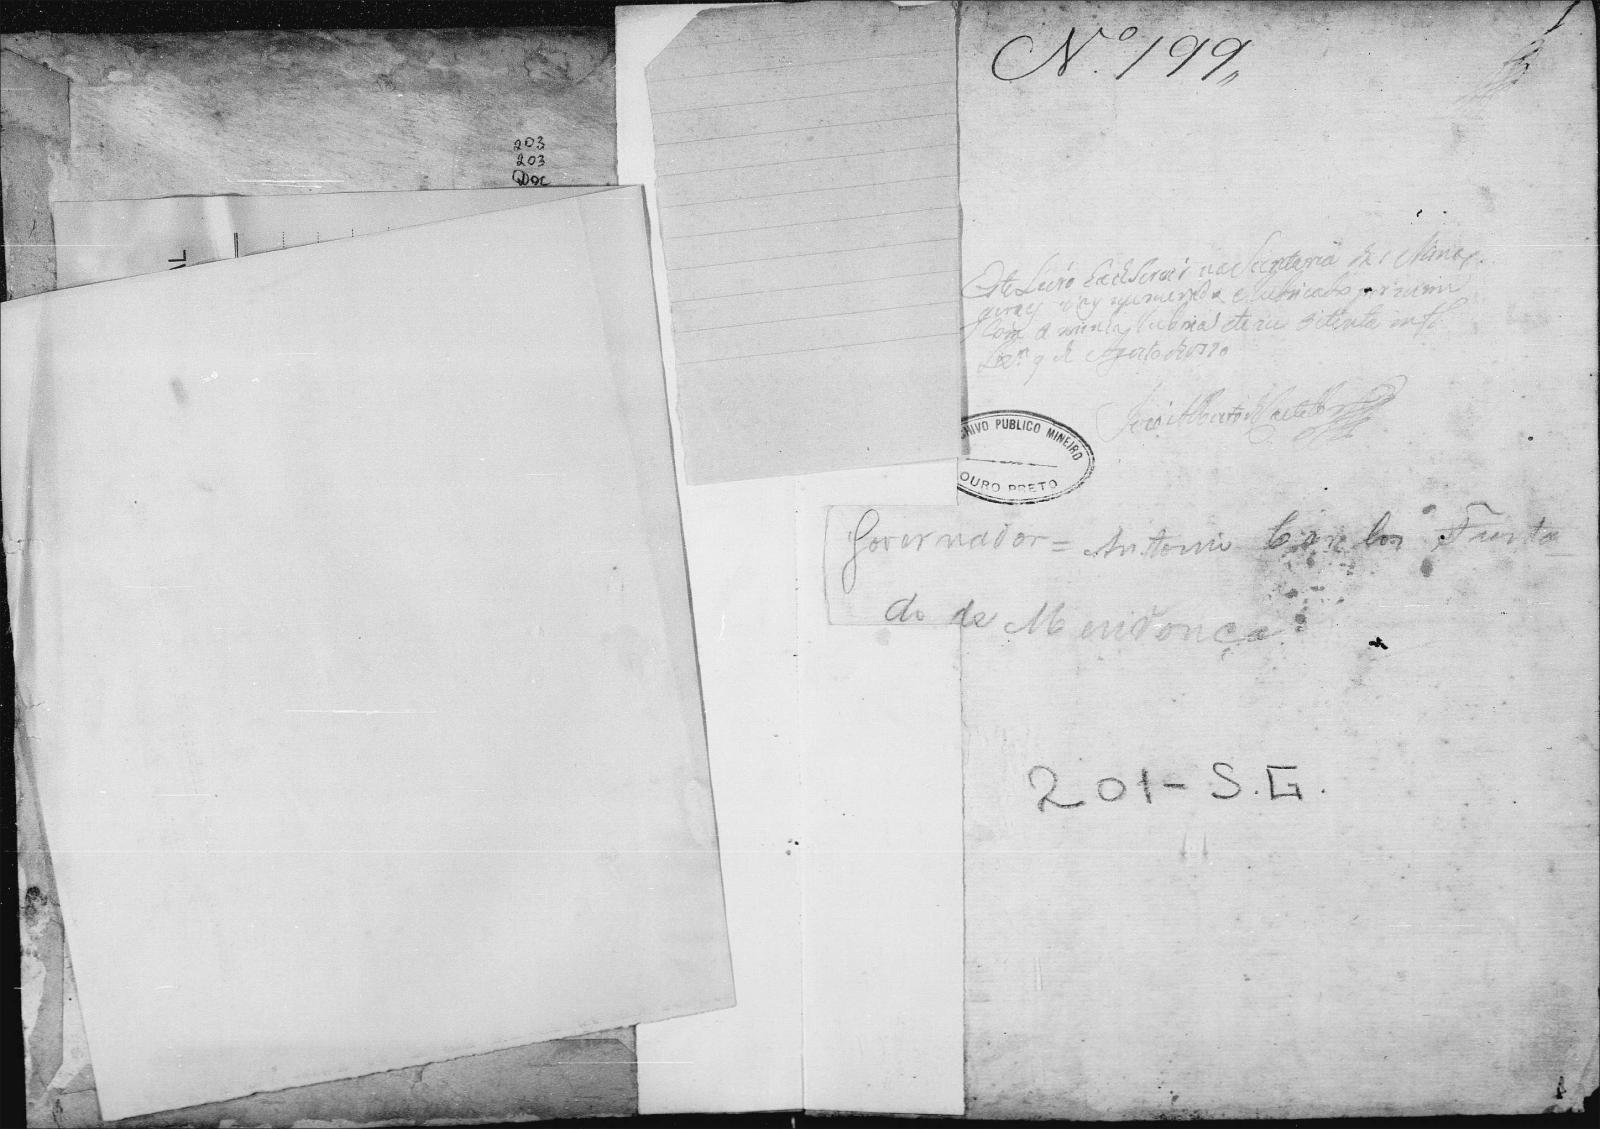 203
203
Doc
AL
Nº 199
1
Este Livro ha de Servir na Secretaria das Minas
geraes e vay numerado e rubricado por mim
com a minha rubrica
Lxª 9 de Agosto de 1770
ARCHIVO PUBLICO MINEIRO
OURO PRETO
Governador = Antonio Carlos Furta
do de Mendonça
201-S.G.